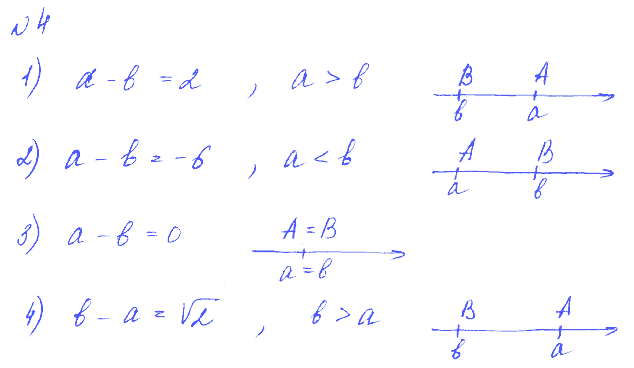 №4
1) a - b = 2 , a > b B A b a
2) a - b = -6 , a < b A B a b
3) a - b = 0 A = B a = b
4) b - a = √2 , b > a B A b a